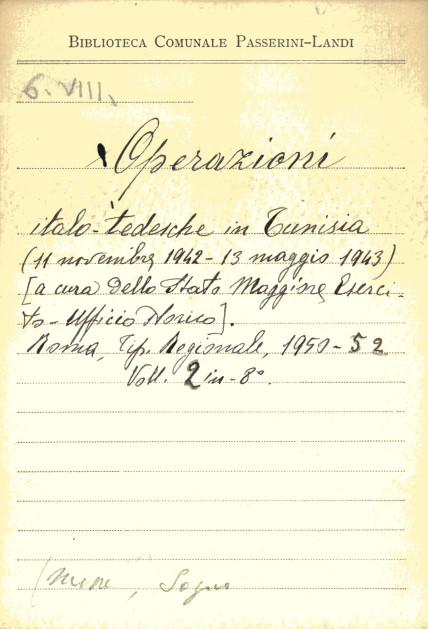 BIBLIOTECA COMUNALE PASSERINI-LANDI
6. VIII.
Operazioni
italo-tedesche in Tunisia
(11 novembre 1942 - 13 maggio 1943)
[a cura dello Stato Maggiore Eserci-
to - Ufficio Storico].
Roma, Tip. Regionale, 1950-52
Voll. 2 in-8°.